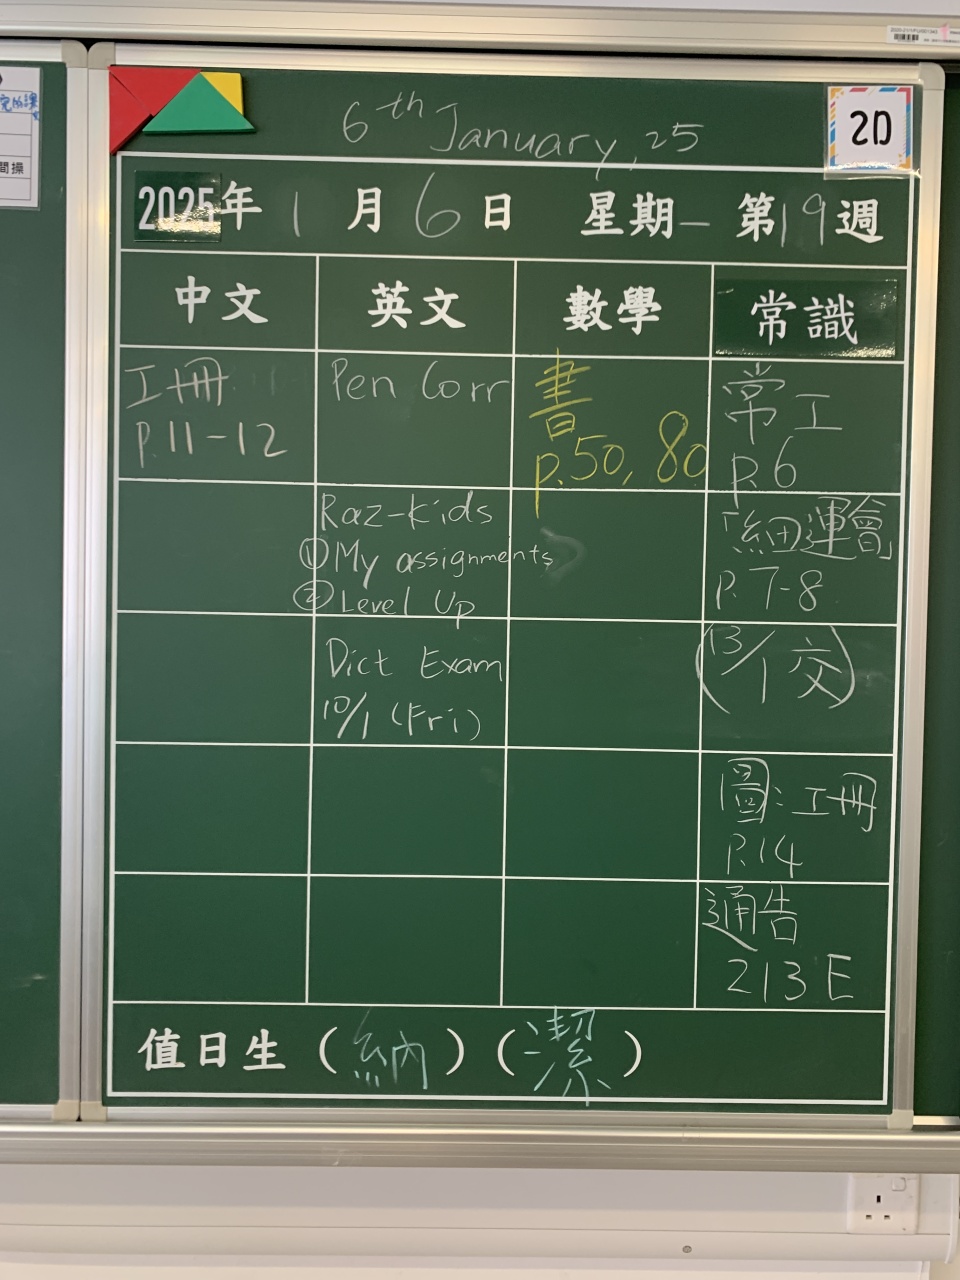 6th January, 25
2D
2025年 1 月 6 日 星期一 第19週
中文 英文 數學 常識
工冊
P.11-12
Pen Corr
書
p.50, 80
常工
P.6
Raz-kids
① My assignments
② Level Up
「細運會
P.7-8
Dict Exam
10/1 (Fri)
(13/1 交)
圖:工冊
P.14
通告
213E
值日生(納)(潔)
間操